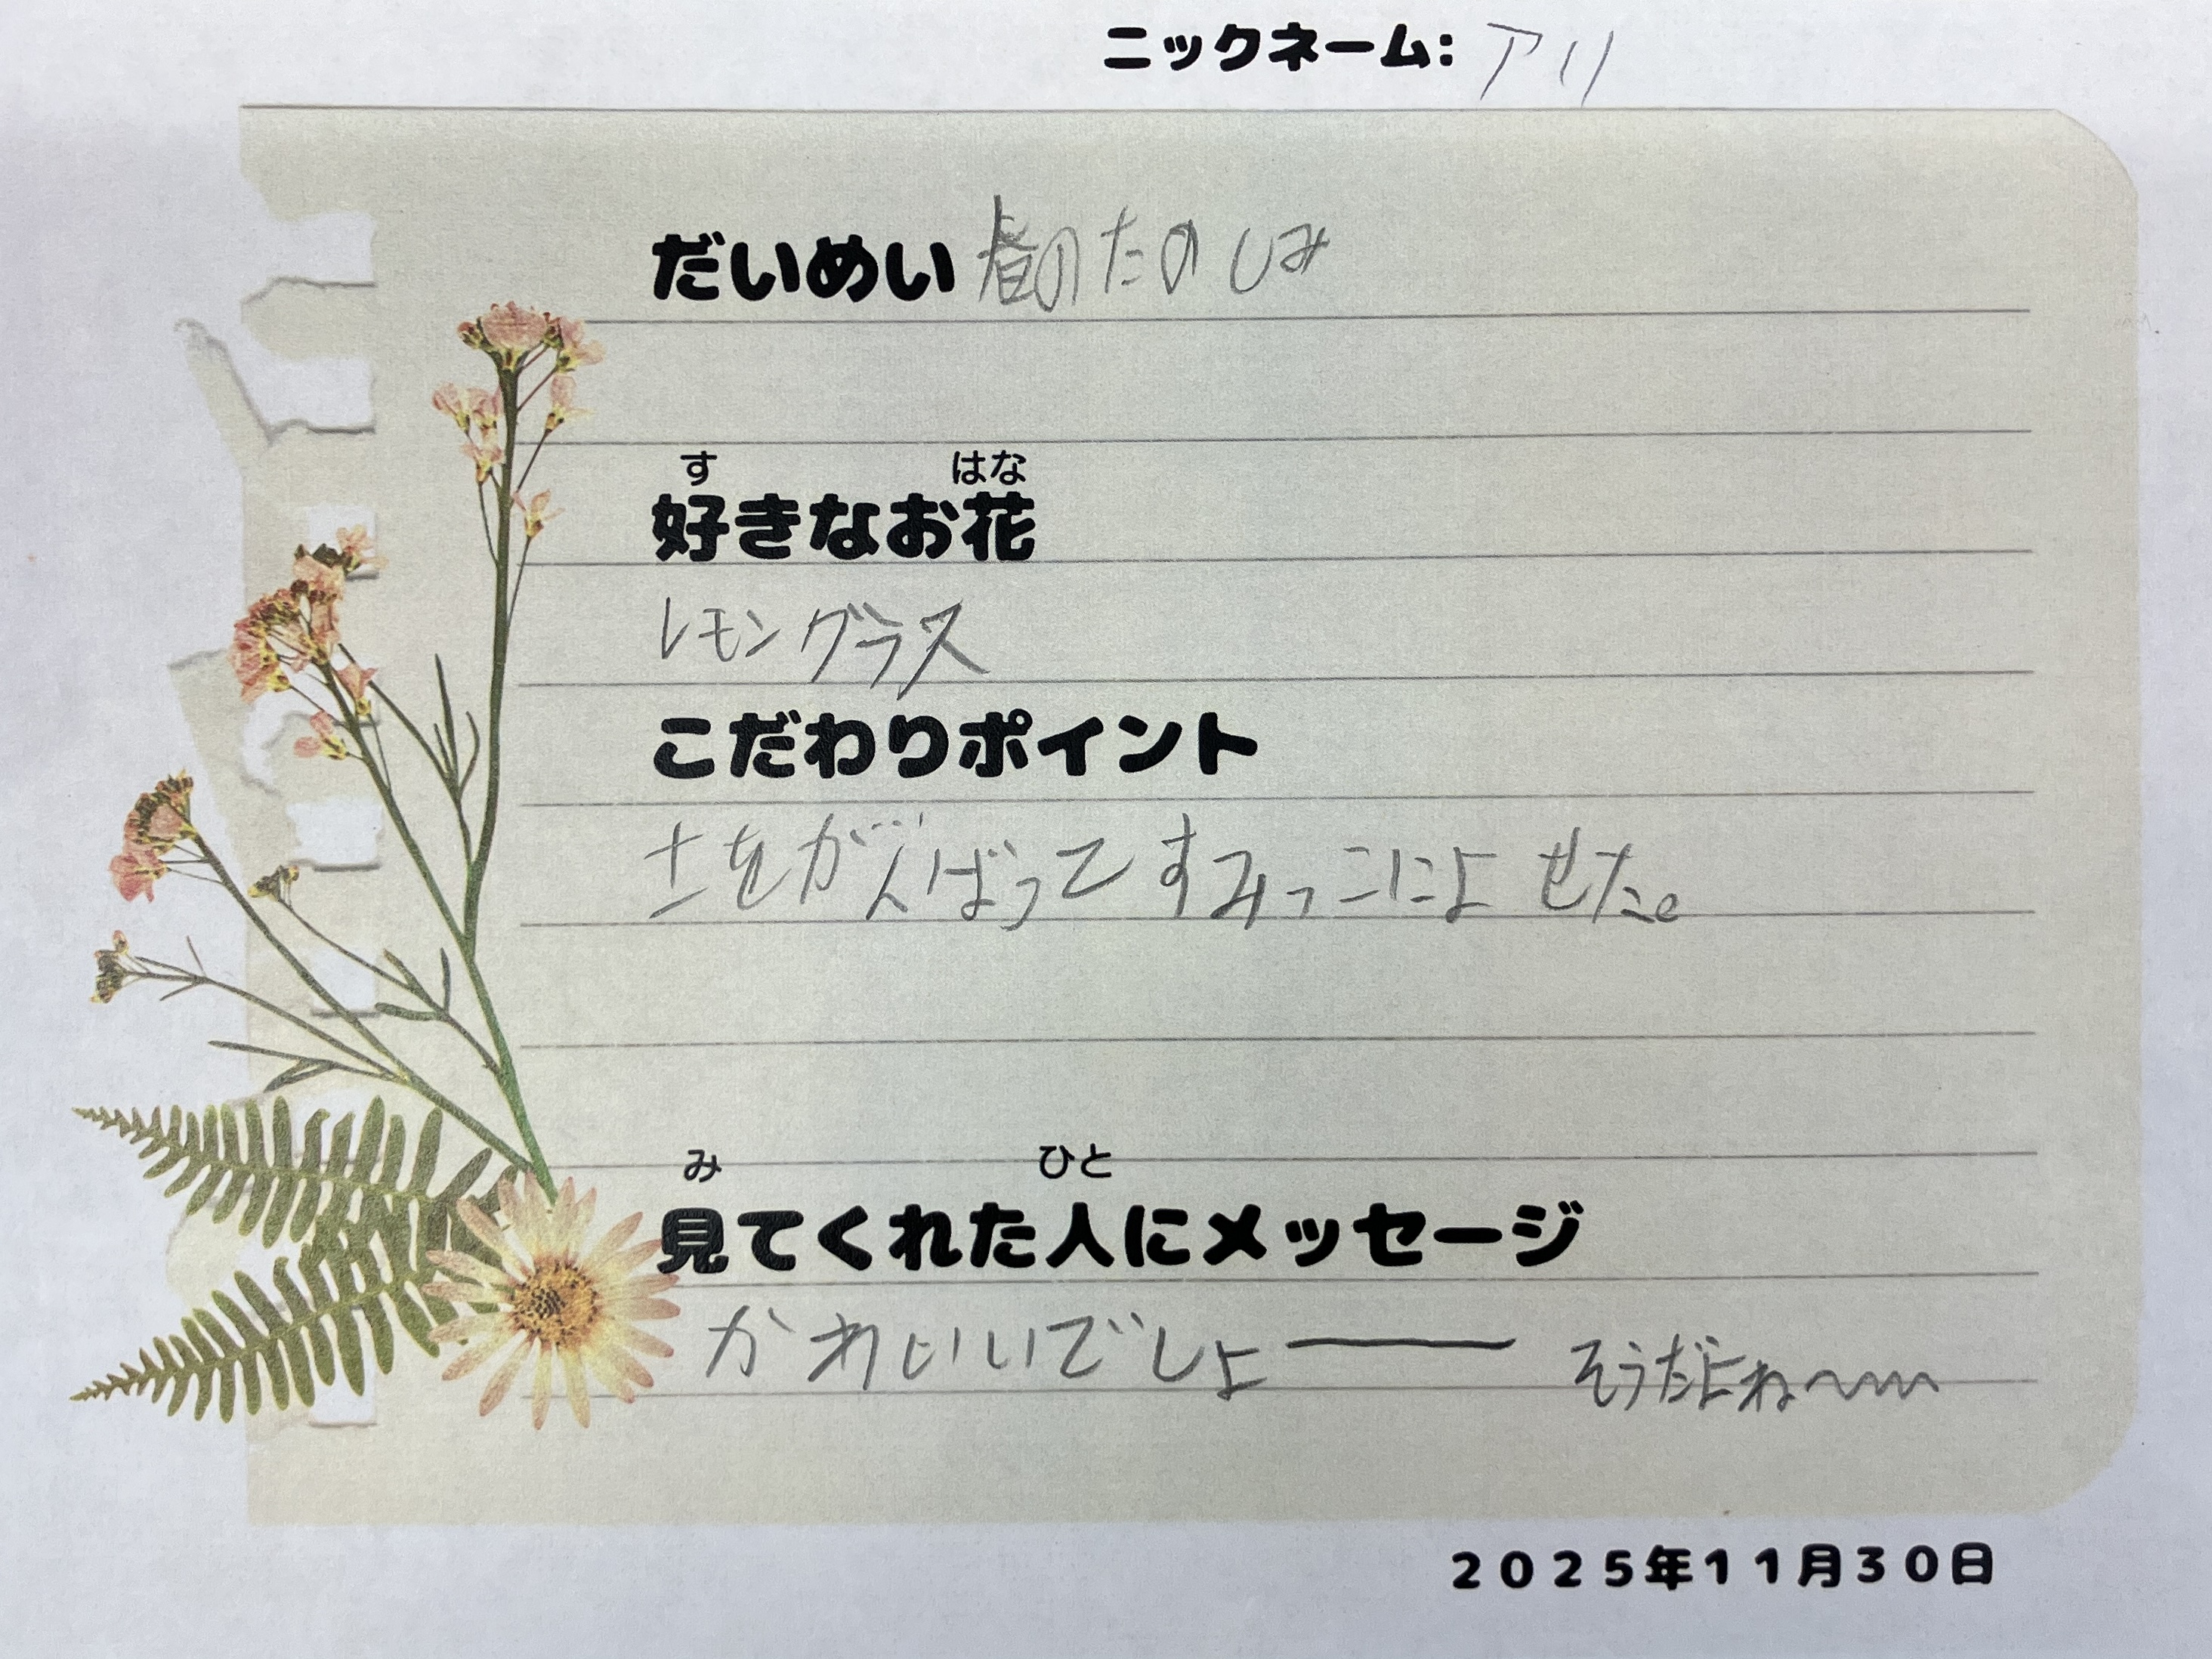 ニックネーム: アリ
だいめい 昼のたのしみ
す はな
好きなお花
レモングラス
こだわりポイント
土をがんばってすみっこによせた。
み ひと
見てくれた人にメッセージ
かわいいでしょー そうだよね〜〜
2025年11月30日